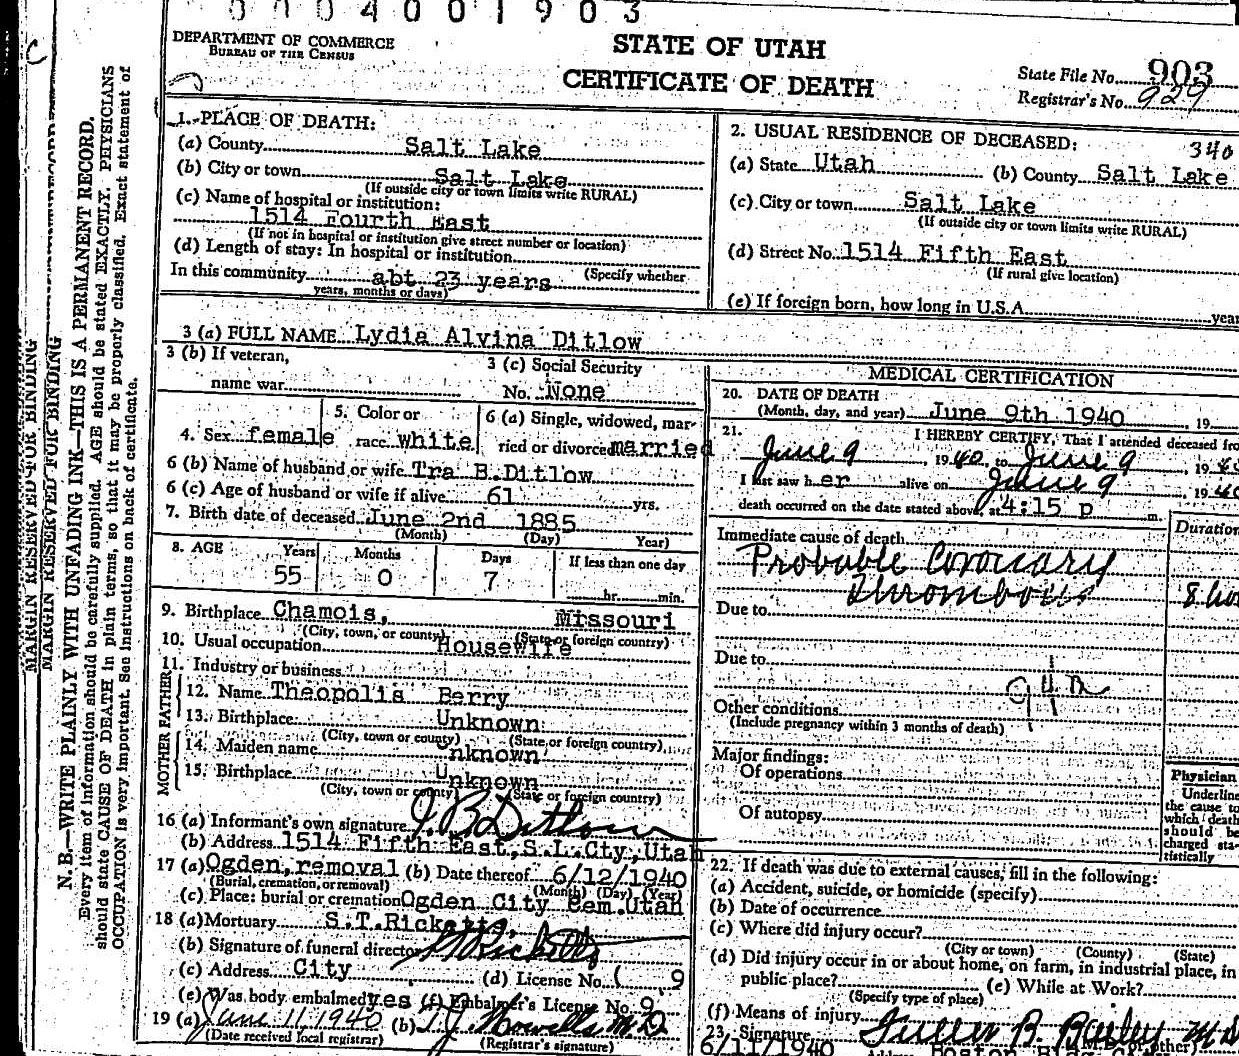 0004001903
DEPARTMENT OF COMMERCE
BUREAU OF THE CENSUS
STATE OF UTAH
CERTIFICATE OF DEATH
State File No. 903
Registrar's No. 929
1. PLACE OF DEATH:
(a) County Salt Lake
(b) City or town Salt Lake
(If outside city or town limits write RURAL)
(c) Name of hospital or institution:
1514 Fourth East
(If not in hospital or institution give street number or location)
(d) Length of stay: In hospital or institution
(Specify whether
In this community abt 23 years
years, months or days)
2. USUAL RESIDENCE OF DECEASED: 340
(a) State Utah (b) County Salt Lake
(c) City or town Salt Lake
(If outside city or town limits write RURAL)
(d) Street No. 1514 Fifth East
(If rural give location)
(e) If foreign born, how long in U.S.A. year
3 (a) FULL NAME Lydia Alvina Ditlow
3 (b) If veteran,
name war
3 (c) Social Security
No. None
4. Sex female
5. Color or
race white
6 (a) Single, widowed, mar-
ried or divorced married
6 (b) Name of husband or wife Tra B.Ditlow
6 (c) Age of husband or wife if alive 61 yrs.
7. Birth date of deceased June 2nd 1885
(Month) (Day) Year)
8. AGE Years Months Days If less than one day
55 0 7 hr. min.
9. Birthplace Chamois, Missouri
(City, town, or county) (State or foreign country)
10. Usual occupation Housewife
11. Industry or business
FATHER
12. Name Theopolis Berry
13. Birthplace Unknown
(City, town or county) (State or foreign country)
MOTHER
14. Maiden name nknown
15. Birthplace Unknown
(City, town or county) State or foreign country)
16 (a) Informant's own signature I. B. Ditlow
(b) Address 1514 Fifth East, S.L.Cty, Utah
17 (a) Ogden, removal (b) Date thereof 6/12/1940
(Burial, cremation, or removal) (Month) (Day) (Year)
(c) Place: burial or cremation Ogden City Cem. Utah
18 (a) Mortuary S.T.Ricketts,
(b) Signature of funeral director Ricketts
(c) Address City (d) License No. ( 9
(e) Was body embalmed yes (f) Embalmer's License No. 9
19 (a) June 11, 1940 (b) M D
(Date received local registrar) (Registrar's signature)
MEDICAL CERTIFICATION
20. DATE OF DEATH
(Month, day, and year) June 9th 1940, 19
21. I HEREBY CERTIFY, That I attended deceased fro
June 9, 1940, to June 9, 1940
I last saw her alive on June 9, 1940
death occurred on the date stated above at 4:15 p m.
Duration
Immediate cause of death
Probable Coronary
Thrombosis 8 ho
Due to
Due to
94a
Other conditions
(Include pregnancy within 3 months of death)
Major findings:
Of operations
Of autopsy
Physician
Underline
the cause to
which death
should be
charged sta-
tistically
22. If death was due to external causes, fill in the following:
(a) Accident, suicide, or homicide (specify)
(b) Date of occurrence
(c) Where did injury occur?
(City or town) (County) (State)
(d) Did injury occur in or about home, on farm, in industrial place, in
public place? (e) While at Work?
(Specify type of place)
(f) Means of injury
23. Signature Fuller B. Bailey M D
6/11/1940 Boston
MARGIN RESERVED FOR BINDING
MARGIN RESERVED FOR BINDING
N. B.—WRITE PLAINLY WITH UNFADING INK—THIS IS A PERMANENT RECORD.
Every item of information should be carefully supplied. AGE should be stated EXACTLY. PHYSICIANS
should state CAUSE OF DEATH in plain terms, so that it may be properly classified. Exact statement of
OCCUPATION is very important. See instructions on back of certificate.